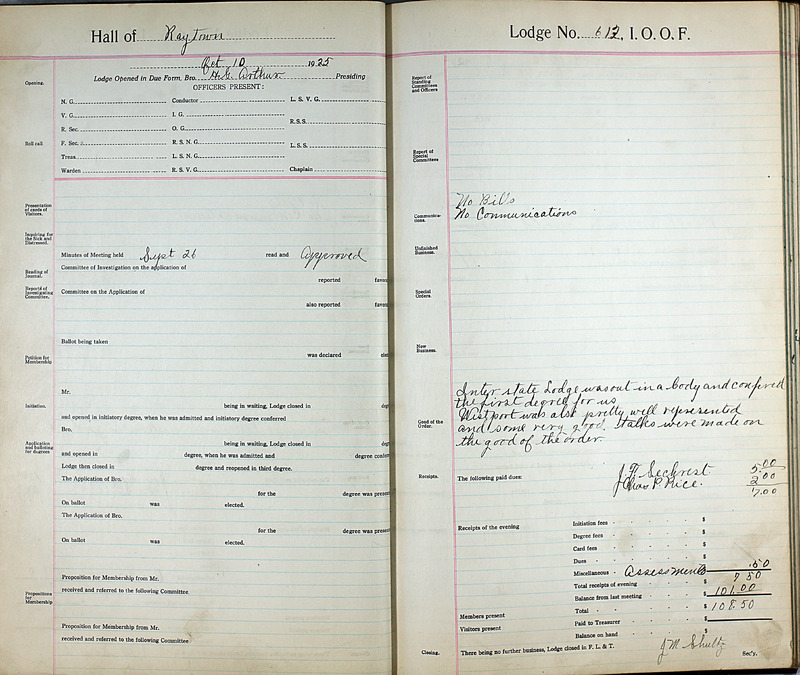 Hall of Raytown
Oct. 10 1925
Opening.
Lodge Opened in Due Form, Bro. H. G. Arthur Presiding
OFFICERS PRESENT:
N. G. Conductor L. S. V. G.
V. G. I. G.
R. S. S.
R. Sec. O. G.
Roll call
F. Sec. R. S. N. G.
L. S. S.
Treas. L. S. N. G.
Warden R. S. V. G. Chaplain
Presentation of cards of Visitors.
Inquiring for the Sick and Distressed.
Minutes of Meeting held Sept 26 read and Approved
Reading of Journal.
Committee of Investigation on the application of
reported favor
Reports of Investigating Committee.
Committee on the Application of
also reported favor
Ballot being taken
was declared elec
Petition for Membership
Mr.
Initiation.
being in waiting, Lodge closed in deg
and opened in initiatory degree, when he was admitted and initiatory degree conferred
Bro.
Application and balloting for degrees
being in waiting, Lodge closed in deg
and opened in degree, when he was admitted and degree confer
Lodge then closed in degree and reopened in third degree.
The Application of Bro.
for the degree was presen
On ballot was elected.
The Application of Bro.
for the degree was presen
On ballot was elected.
Proposition for Membership from Mr.
Propositions for Membership
received and referred to the following Committee
Proposition for Membership from Mr.
received and referred to the following Committee
Lodge No. 612, I. O. O. F.
Report of Standing Committees and Officers
Report of Special Committees
No Bills
Communications.
No Communications
Unfinished Business.
Special Orders.
New Business.
Inter state Lodge was out in a body and confered
the first degree for us
Westport was also pretty well represented
Good of the Order.
and some very good talks were made on
the good of the order.
Receipts.
The following paid dues: J. F. Seckrest 5.00
Chas P. Rice. 2.00
7.00
Receipts of the evening Initiation fees $
Degree fees $
Card fees $
Dues $
Miscellaneous Assessments .50
Total receipts of evening $ 7 50
Balance from last meeting $ 101.00
Members present Total $ 108.50
Visitors present Paid to Treasurer $
Balance on hand $
Closing.
There being no further business, Lodge closed in F. L. & T. J M Shultz Sec'y.